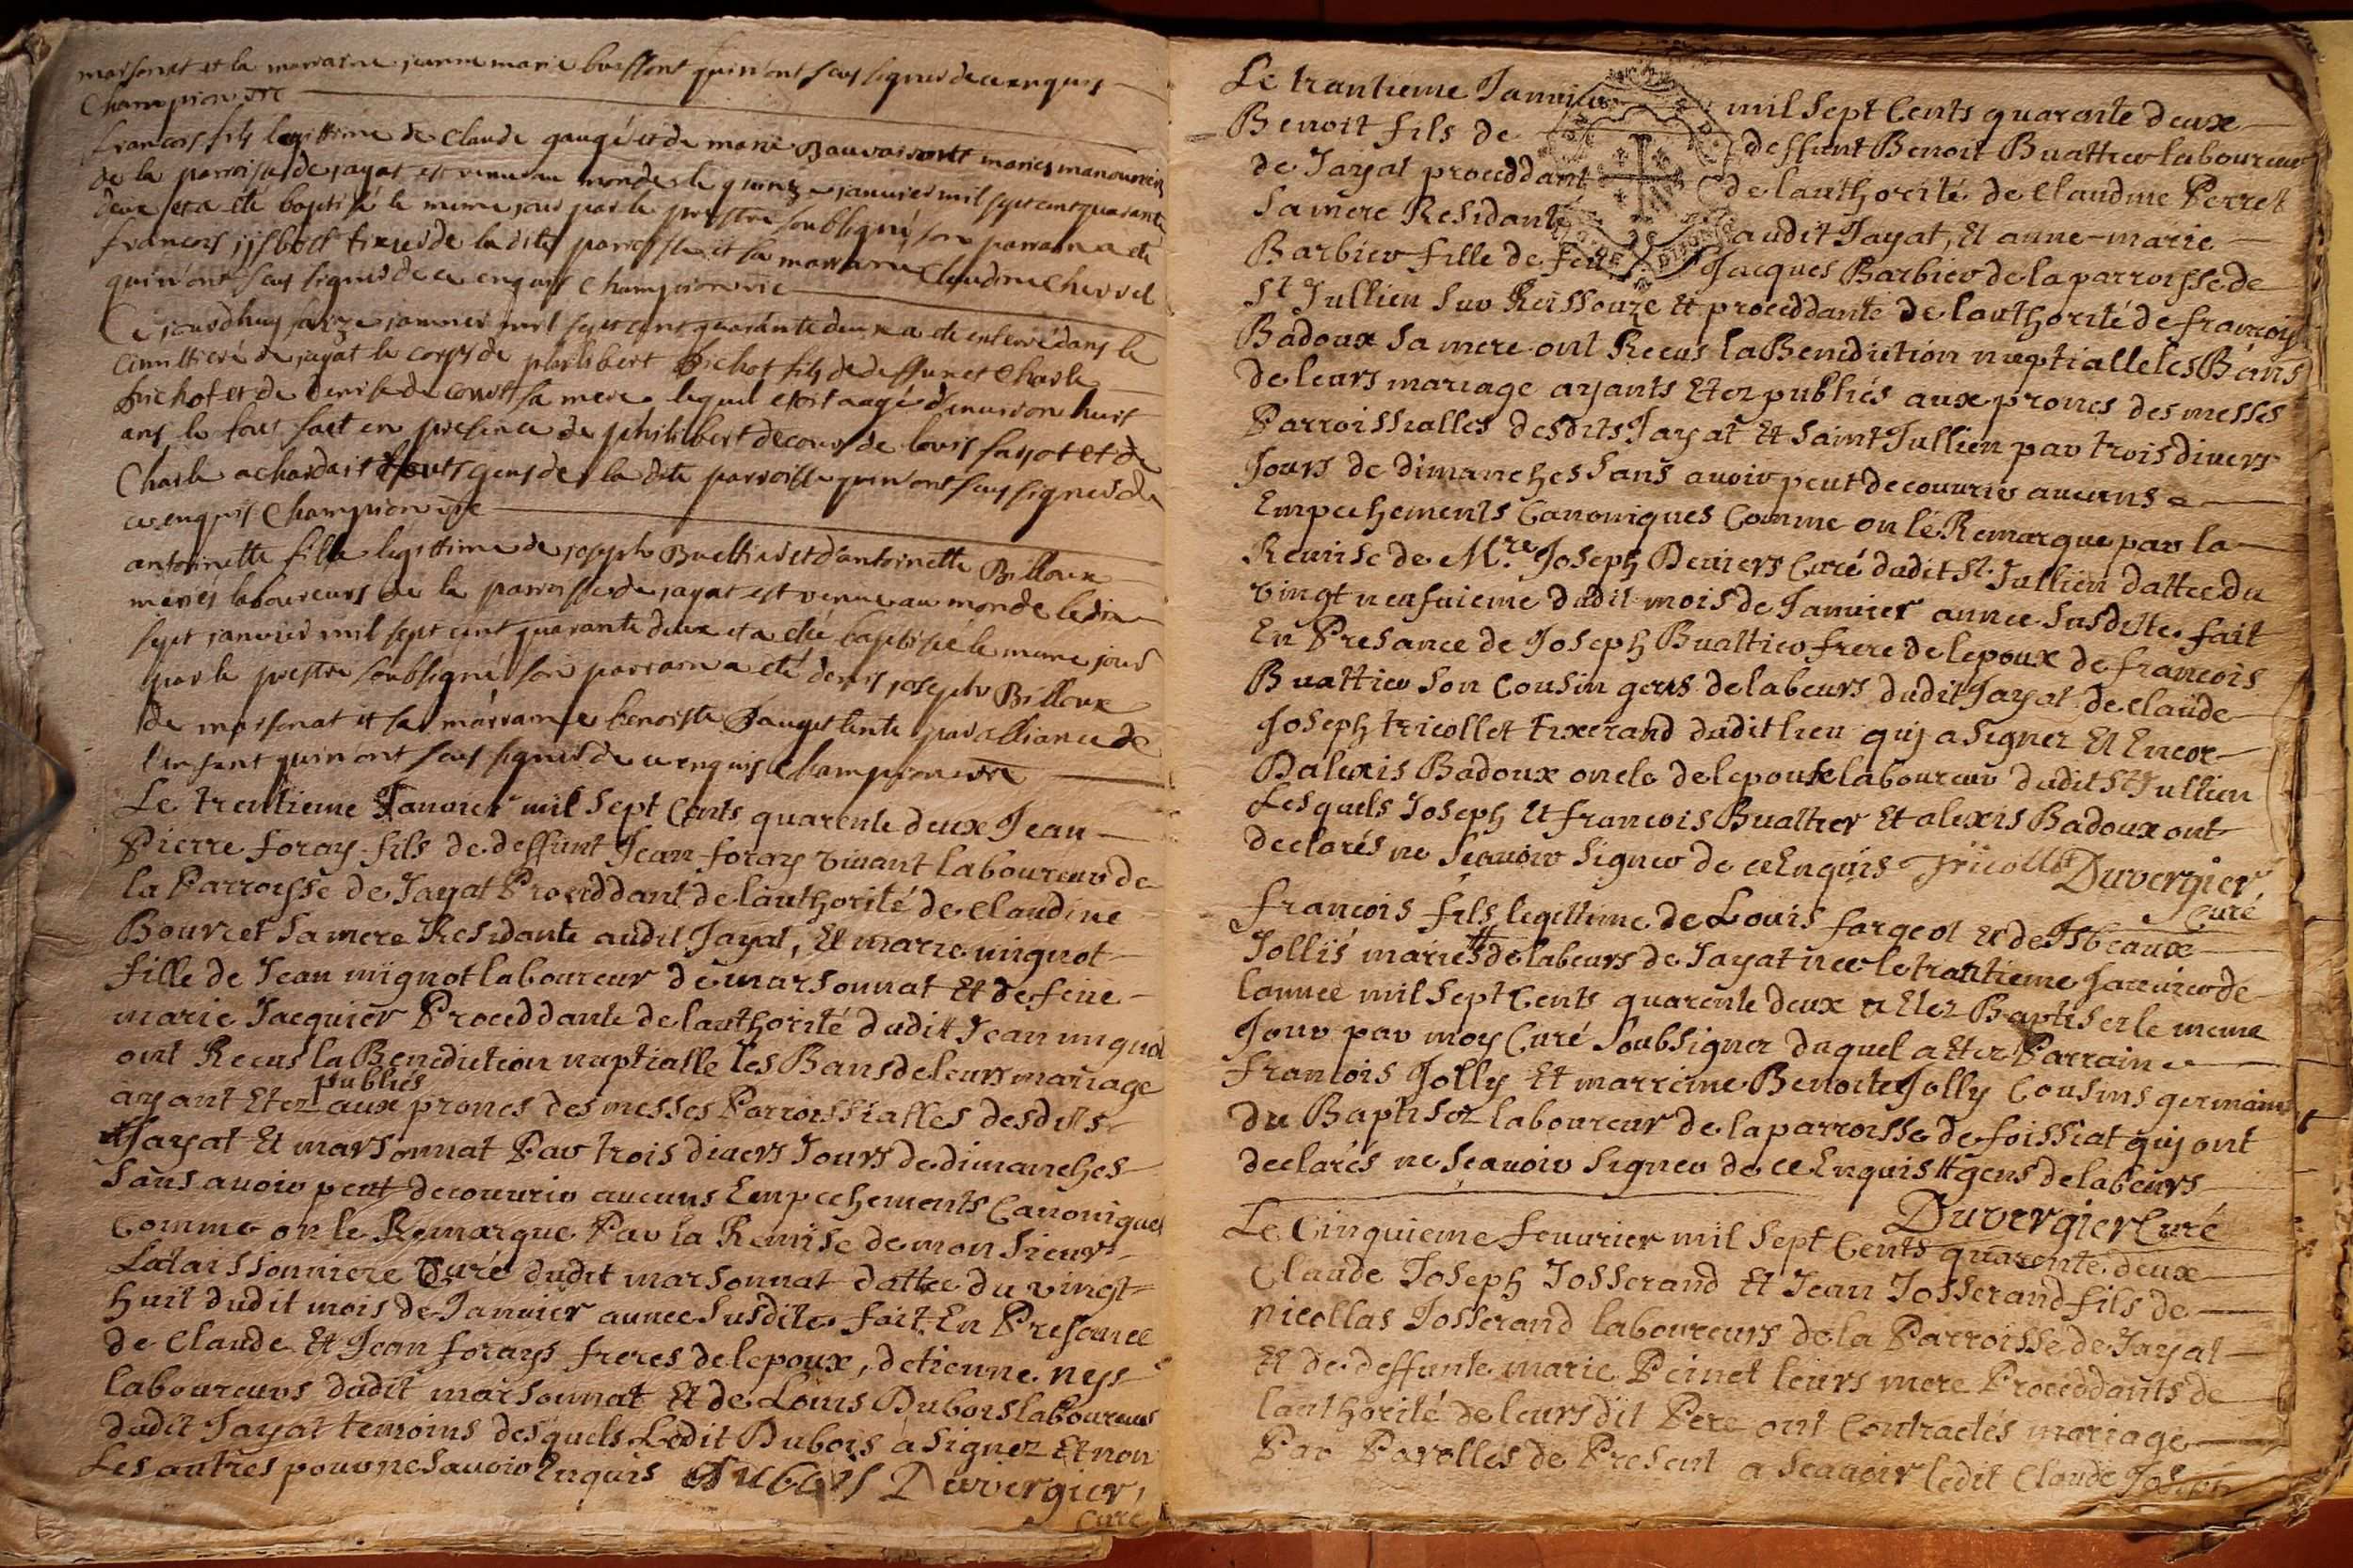 marsonat et la marraine jeanne marie buissont qui n'ont seus signer de ce enquis
Champion vre
francois fils legittime de Claude gaugé et de marie Bauvaisont mariés manouvriers
de la parroisse de jayat est venu au monde le quinze janvier mil sept cent quarante
deux et a eté baptisé le même jour par le prestre soubsigné son parrain a eté
francois tixier de ladite parroisse et sa marraine Claudine Chervel
qui n'ont seus signer de ce enquis Champion vre
Ce jourdhuy seize janvier mil sept cent quarante deux a eté enterré dans le
cimittiere de jayat le corps de philibert Frichot fils de deffunct Charle
frichot et de denise de court sa mere lequel etoit aagé d'environ huit
ans le tous fait en presence de philibert decour de louis fayot et de
Charle achardait touts gens de la dite parroisse qui n'ont seus signer de
ce enquis Champion vre
antoinette fille legittime de joseph Buattier et d'antoinette Billoux
mariés laboureurs de la parroisse de jayat est venue au monde le dix
sept janvier mil sept cent quarante deux et a eté baptisée le meme jour
par le prestre soubsigné son parrain a eté denis joseph Billoux
de marsonat et sa marraine benoiste Dauget tente par alliance de
l'enfant qui n'ont seus signer de ce enquis Champion vre
Le trentieme Janvier mil Sept Cents quarente deux Jean
Pierre foray fils de deffunt Jean foray vivant laboureur de
la Parroisse de Jayat Proceddant de lauthorité de Claudine
Bourcet Sa mere Residante audit Jayat, Et marie mignot
fille de Jean mignot laboureur de marsonnat Et de feue
marie Jacquier Proceddante de lauthorité dudit Jean mignot
ont Recus la Benediction nuptialle les Bans de leurs mariage
ayant Etez publiés aux prones des messes Parroissialles desdits
Jayat Et marsonnat Par trois divers Jours de dimanches
Sans avoir peut decouvrir aucuns Empechements Canoniques
Comme on le Remarque Par la Remise de monsieur
Lataissonniere Curé dudit marsonnat dattee du vingt=
huit dudit mois de Janvier annee Susdite. fait En Presance
de Claude Et Jean forays freres de lepoux, detienne neys
laboureurs dudit marsonnat Et de Louis Dubois laboureur
dudit Jayat temoins desquels Ledit Dubois a signez Et non
Les autres pour ne Savoir Enquis Dubois Duvergier,
Curé
Le trantieme Janvier mil Sept Cents quarante deux
Benoit fils de deffunt Benoit Buattier laboureur
de Jayat proceddant de lauthorité de Claudine Perret
Sa mere Residante audit Jayat, Et anne-marie
Barbier fille de feu Jacques Barbier de la parroisse de
St Jullien Sur Reissouze Et proceddante de lauthorité de francoise
Badoux Sa mere ont Recus la Benediction nuptialle les Bans
de leurs mariage ayants Etez publiés aux prones des messes
Parroissialles desdits Jayat Et Saint Jullien par trois divers
Jours de dimanches Sans avoir peut decouvrir aucuns
Empechements Canoniques Comme on le Remarque par la
Remise de Mre. Joseph Deviers Curé dudit St. Jullien dattee du
vingt neufvieme dudit mois de Janvier annee Susdite. fait
En Presance de Joseph Buattier frere de lepoux de francois
Buattier Son Cousin gens de labeurs dudit Jayat de Claude
Joseph tricollet tixerand dudit lieu quj a Signez Et Encor
Dalexis Badoux oncle de lepouse laboureur dudit St Jullien
Lesquels Joseph Et francois Buattier Et alexis Badoux ont
declarés ne Scavoir Signer de ce Enquis Tricollet Duvergier,
Curé
francois fils legittime de Louis fargeot Et de Isbeaux
Jollis mariés # de labeurs de Jayat nee le trantieme Janvier de
lannee mil Sept Cents quarente deux a Etez Baptisez le meme
Jour par moy Curé Soubsignez duquel a Etez Parrain
francois Jolly Et marreine Benoite Jolly Cousins germains
du Baptisez laboureur de la parroisse de foissiat quj ont
declarés ne Scavoir Signer de ce Enquis # gens de labeurs
Duvergier Curé
Le Cinquieme feuvrier mil Sept Cents quarente deux
Claude Joseph Josserand Et Jean Josserand fils de
nicollas Josserand laboureurs de la Parroisse de Jayat
Et de deffunte marie Peinet leurs mere Proceddants de
lauthorité de leurs dit Pere ont Contractés mariage
Par Parolles de Present a Scavoir ledit Claude Joseph